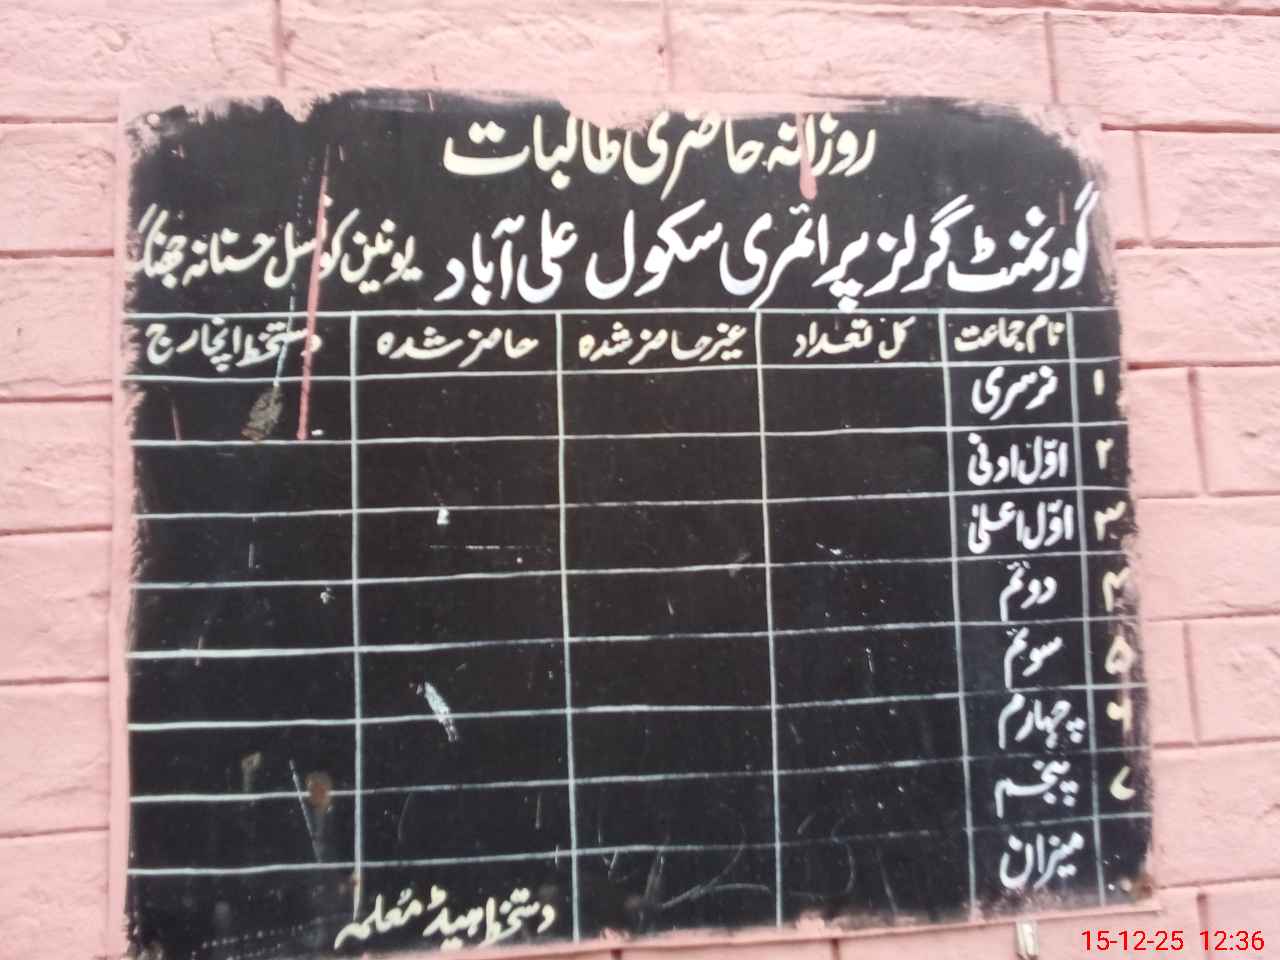 روزانہ حاضری طالبات
گورنمنٹ گرلز پرائمری سکول علی آباد یونین کونسل حسنانہ جھنگ
نام جماعت کل تعداد غیر حاضر شدہ حاضر شدہ دستخط انچارج
۱ نرسری
۲ اوّل ادنیٰ
۳ اوّل اعلیٰ
۴ دوئم
۵ سوئم
۶ چہارم
۷ پنجم
میزان
دستخط ہیڈ معلمہ
15-12-25 12:36